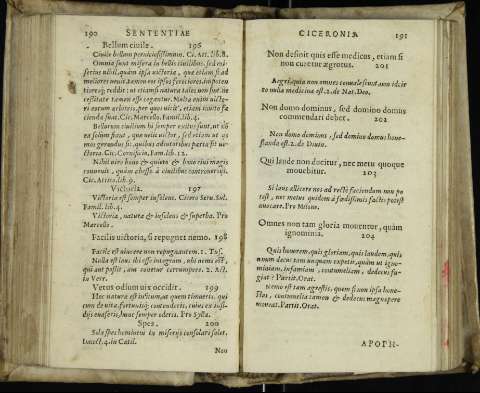 190 SENTENTIAE
Bellum ciuile. 196
Ciuile bellum perniciosissimum. Cic. Att. lib.8.
Omnia sunt misera in bellis ciuilibus, sed mi-
serius nihil, quàm ipsa uictoria, quae etiam si ad
meliores uenit, tamen eos ipsos ferociores impoten
tioresq; reddit: ut etiamsi natura tales non sint, ne
cessitate tamen esse cogantur. Multa enim uicto-
ri eorum arbitrio, per quos uicit, etiam inuito fa
cienda sunt. Cic. Marcello. Famil.lib.4.
Bellorum ciuilium hi semper exitus sunt, ut nõ
ea solum fiant, quae uelit uictor, sed etiam ut
mos gerendus sit, quibus adiutoribus parta sit ui-
ctoria. Cic. Cornificio, Fam.lib.12.
lib.9.
Victoria. 197
Victoria est semper insolens. Cicero Seru. Sul.
Famil. lib.4.
Victoria, natura & insolens & superba. Pro
Marcello.
Facilis uictoria, si repugnet nemo. 198
Facile est uincere non repugnantem. 1. Tus.
Nulla est
qui aut possit, aut conetur corrumpere. 2. Act.
in Verr.
Vetus odium uix occidit. 199
Hec natura est insitum, ut quem timueris, qui
cum de uita, fortunisq; contenderis, cuius ex insi-
dijs euaseris, hunc semper oderis. Pro Sylla.
Spes. 200
Sola spes hominem in miserijs consolari solet.
Inuect.4.in Catil.
Non
CICERONIA 191
Non desinit quis esse medicus, etiam si
non curet aegrotus. 201
Aegri, quia non omnes conualescunt, non idcir
co nulla medicina est. 2.de Nat. Deo.
Non domo dominus, sed domino domus
commendari debet. 202
Non domo dominus, sed domino domus hone-
standa est.
Qui laude non ducitur, nec metu quoque
mouebitur. 203
Si laus allicere nos ad rectè faciendum non po
test, nec metus quidem à foedissimis factis potest
auocare. Pro
Omnes non tam gloria mouentur, quàm
ignominia. 204
Quis honorem, quis gloriam, quis laudem, quis
unum decus tam unquam expetit, quàm ut igno-
miniam, infamiam, contumeliam, dedecus fu-
giat? Partit.Orat.
Nemo est tam agrestis, quem si non ipsa hone-
stas, contumelia tamen & dedecus magnopere
moueat. Partit.Orat.
APOPH-